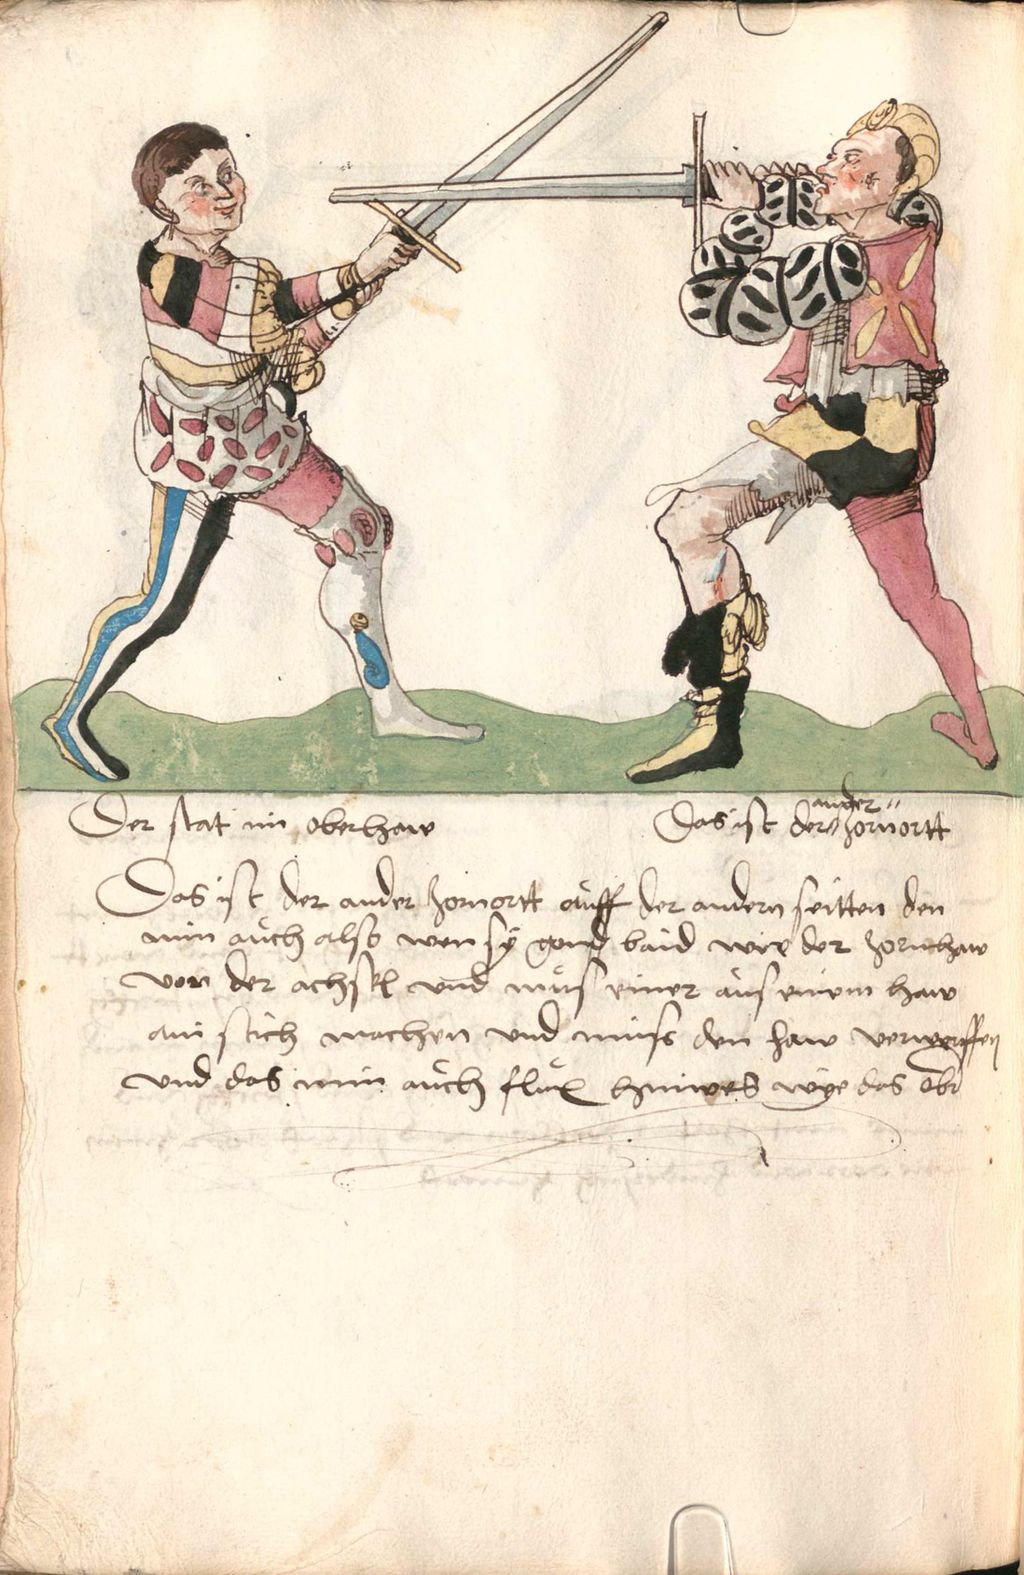 Der stat im oberhaw
Das ist der ander zornortt
Das ist der ander zornortt auff der andern seitten den
nim auch also wen sy gend baid wie der zornhaw
von der achsel und mus einer aus einem haw
ain stich machen und muss den haw verwerffen
und das nim auch flux hinweg wye das obr